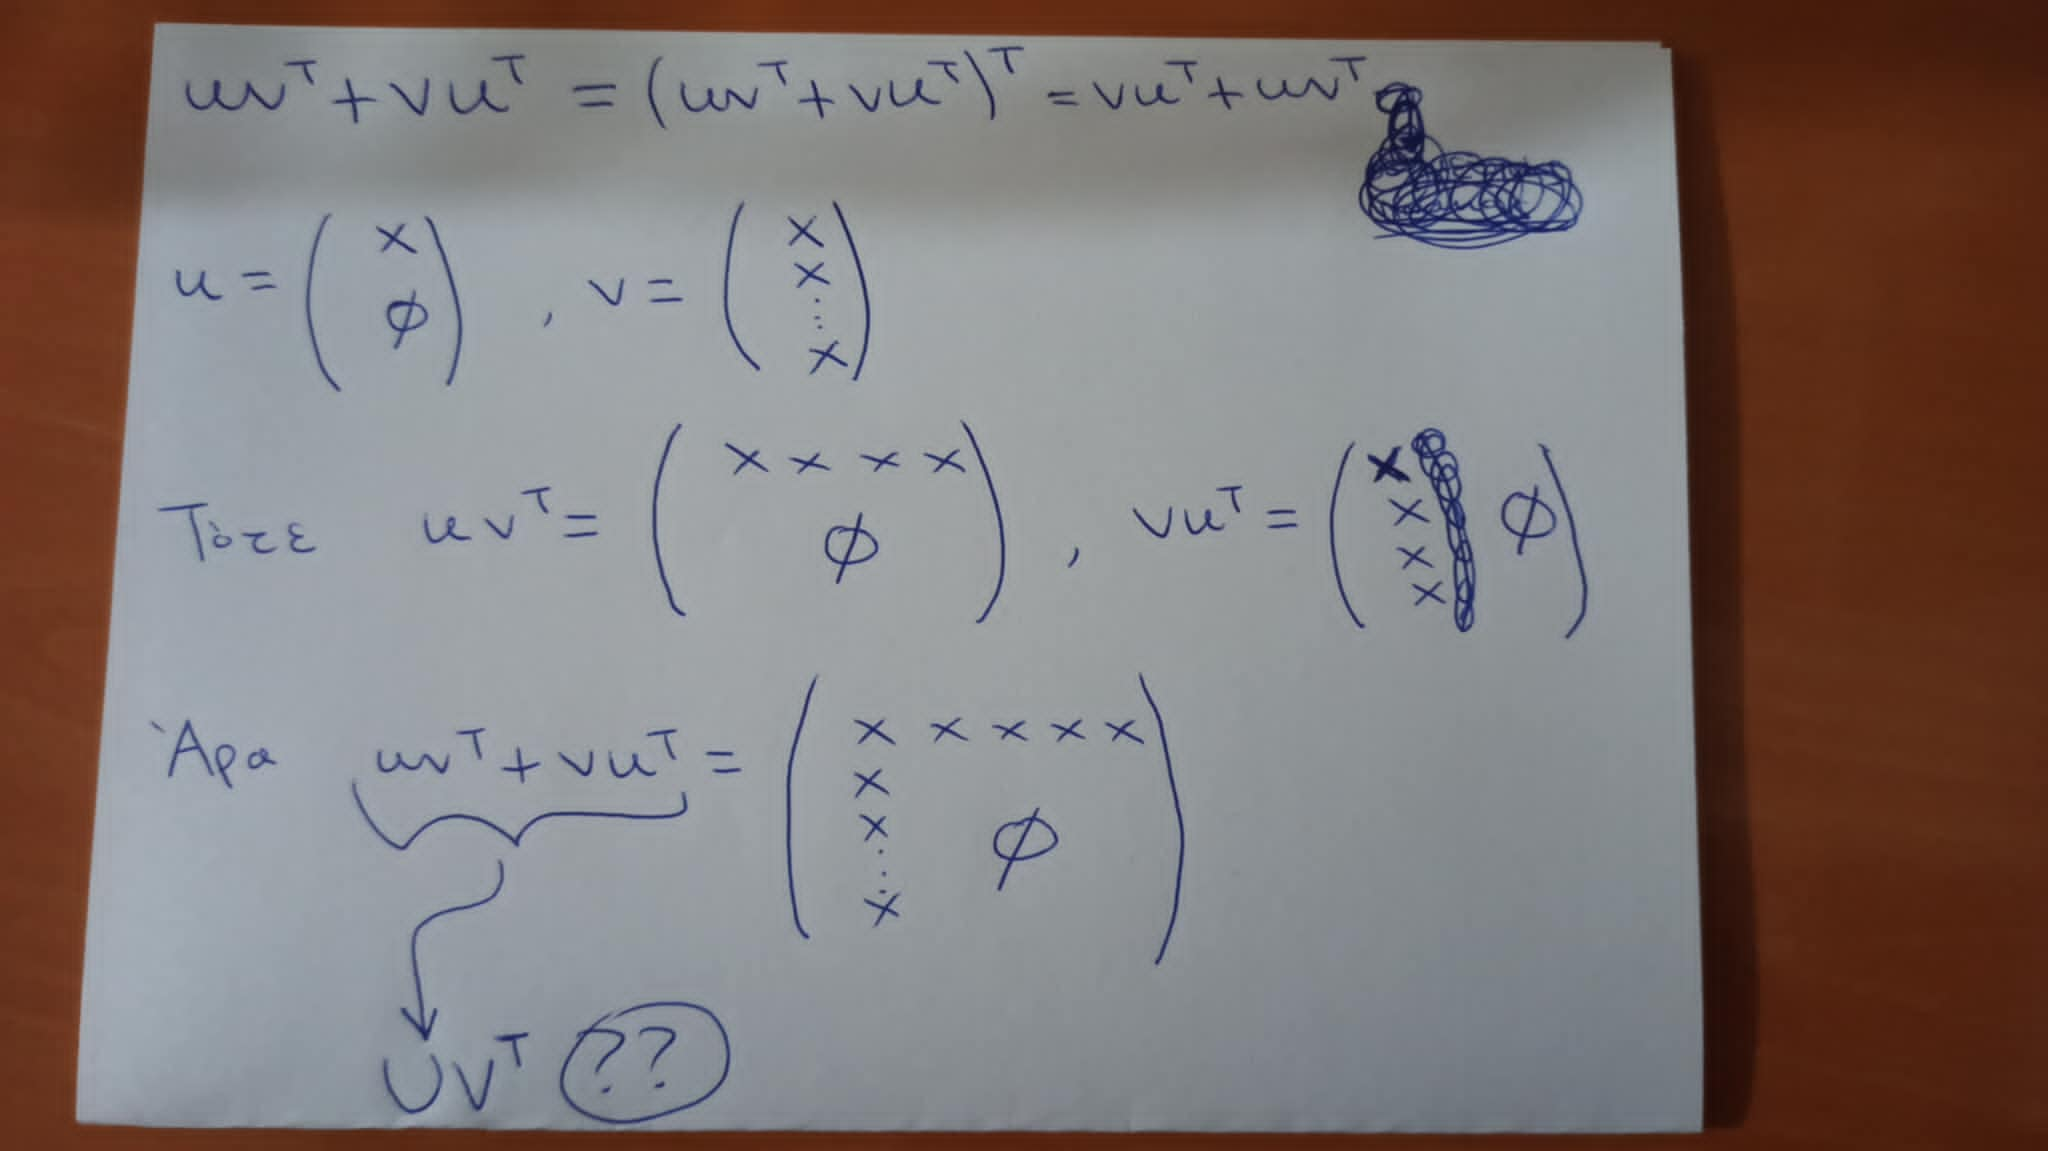 uvᵀ + vuᵀ = (uvᵀ + vuᵀ)ᵀ = vuᵀ + uvᵀ
u = ( x ∅ ) , v = ( x x ⋮ x )
Τότε uvᵀ = ( x x x x ∅ ) , vuᵀ = ( x x x x ∅ )
Άρα uvᵀ + vuᵀ = ( x x x x x x x ⋮ x ∅ )
UVᵀ ??